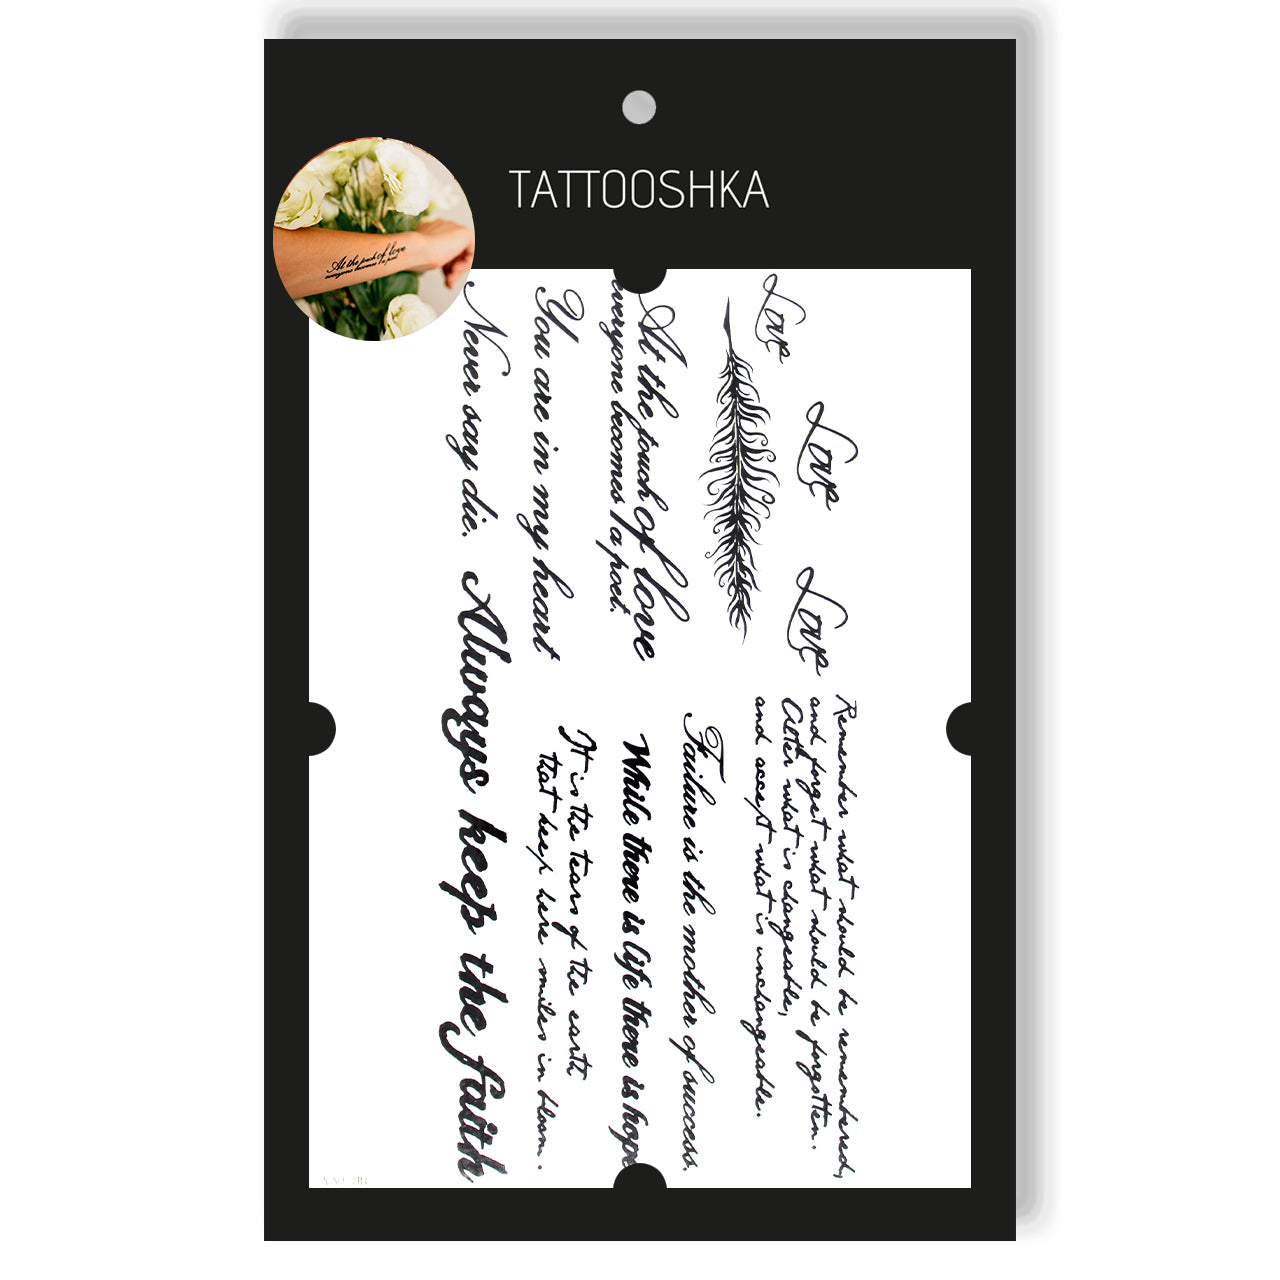 TATTOOSHKA
At the touch of love
everyone becomes a poet
Love
Love
Love
At the touch of love
everyone becomes a poet.
You are in my heart
Never say die.
Remember what should be remembered,
and forget what should be forgotten.
Alter what is changeable,
and accept what is unchangeable.
Failure is the mother of success.
While there is life there is hope
It is the tears of the earth
that keep here smiles in bloom.
Always keep the faith